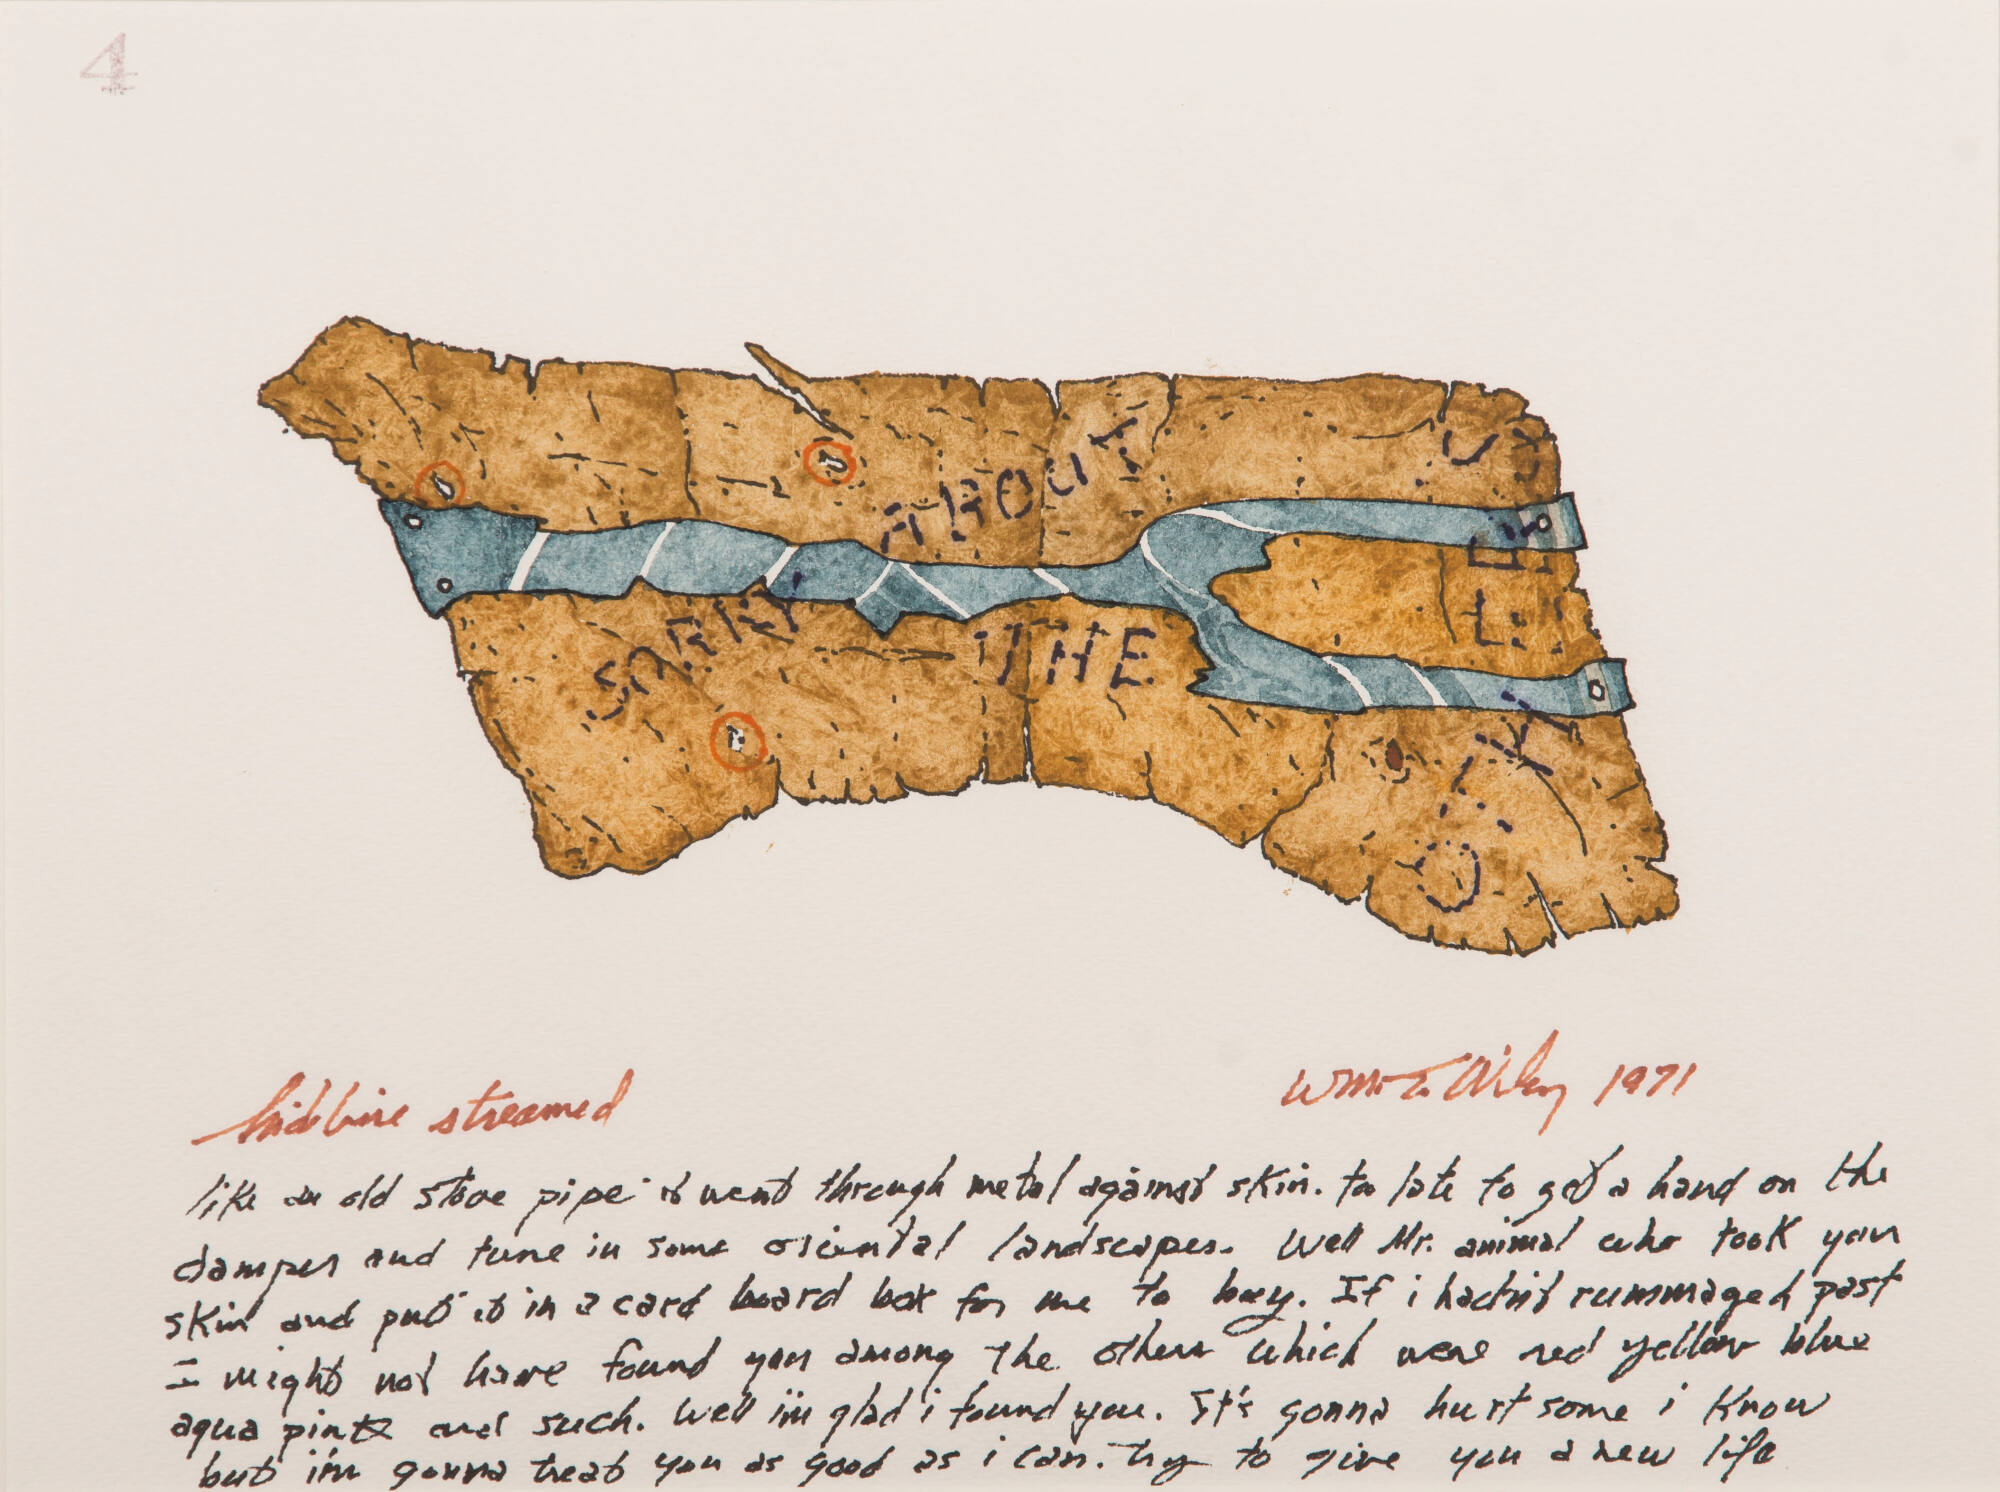 4
SORRY ABOUT THE
hideline streamed
Wm T. Wiley 1971
like an old stove pipe it went through metal against skin. to late to get a hand on the
damper and tune in some oriental landscapes. Well Mr. animal who took your
skin and put it in a card board box for me to buy. If i hadn't rummaged past
I might not have found you among the others which were red yellow blue
aqua pink and such. Well i'm glad i found you. It's gonna hurt some i know
but i'm gonna treat you as good as i can. try to give you a new life